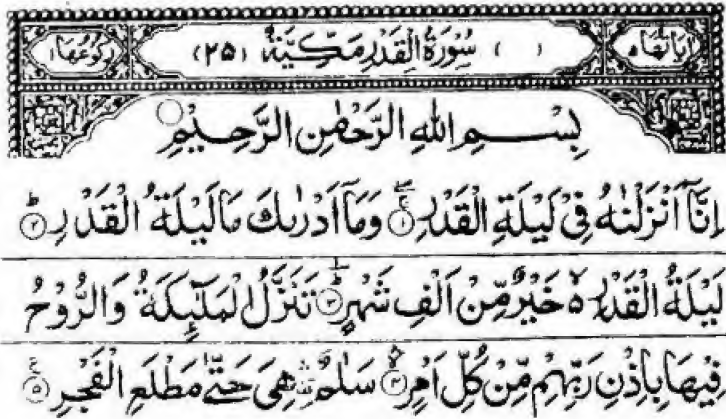 اٰیَاتُهَا ٥ ( ) سُوْرَةُ الْقَدْرِ مَكِّیَّةٌ (٢٥) رُكُوْعُهَا ١
بِسْمِ اللهِ الرَّحْمٰنِ الرَّحِیْمِ
اِنَّاۤ اَنْزَلْنٰهُ فِیْ لَیْلَةِ الْقَدْرِ ١ وَمَاۤ اَدْرٰىكَ مَا لَیْلَةُ الْقَدْرِ ٢
لَیْلَةُ الْقَدْرِ ە خَیْرٌ مِّنْ اَلْفِ شَهْرٍ ٣ تَنَزَّلُ الْمَلٰٓىِٕكَةُ وَالرُّوْحُ
فِیْهَا بِاِذْنِ رَبِّهِمْ مِّنْ كُلِّ اَمْرٍ ٤ سَلٰمٌ هِیَ حَتّٰى مَطْلَعِ الْفَجْرِ ٥